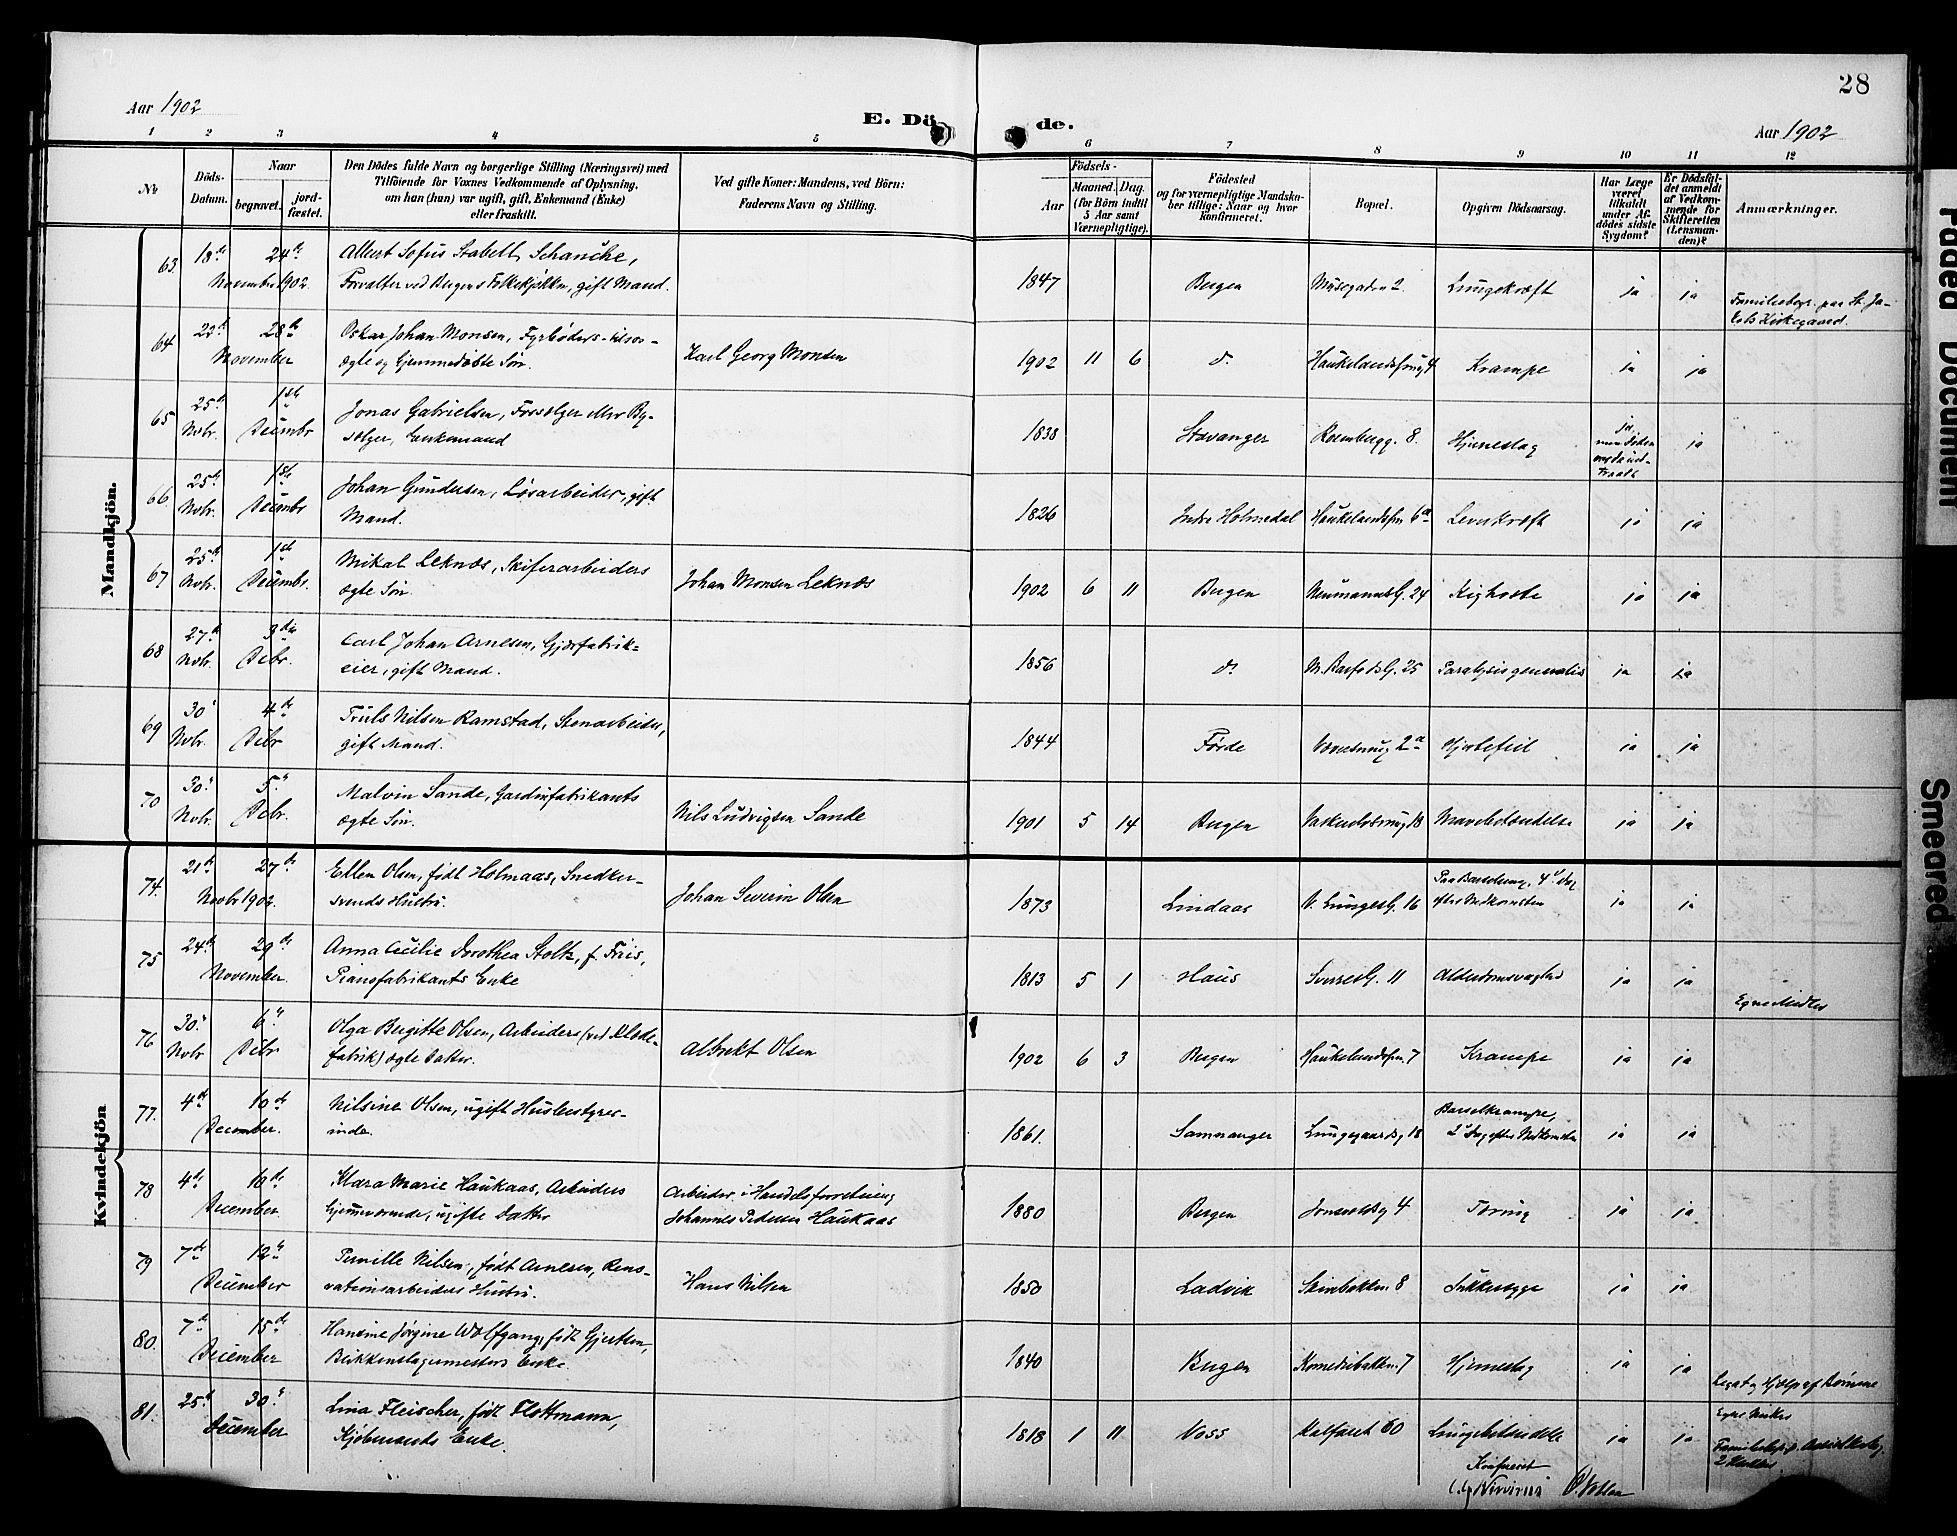 28
Aar 1902
E. Dö
de.
Aar 1902
1 2 3 4 5 6 7 8 9 10 11 12
No
Döds-
Datum.
Naar
begravet.
jord-
fæstet.
Den Dödes fulde Navn og borgerlige Stilling (Næringsvei) med
Tilföiende for Voxnes Vedkommende af Oplysning,
om han (hun) var ugift, gift, Enkemand (Enke)
eller fraskilt.
Ved gifte Koner: Mandens, ved Börn:
Faderens Navn og Stilling.
Födsels-
Aar
Maaned. Dag.
(for Börn indtil
5 Aar samt
Værnepligtige).
Födested
og for værnepligtige Mandska-
ber tillige: Naar og hvor
konfirmeret.
Bopæl.
Opgiven Dödsaarsag.
Har Læge
været
tilkaldt
under Af-
dödes sidste
Sygdom?
Er Dödsfal-
det anmeldt
af Vedkom-
mende for
Skifteretten
(Lensman-
den)?
Anmærkninger.
Mandkjön.
63. 18de 24de Albert Sofus Stabell Schanche,
November 1902. Forvalter ved Bergens Folkekjøkken, gift Mand. 1847 Bergen Musegaden 2. Lungekræft ja ja Familiebegr. paa St. Ja-
kobs Kirkegaard.
64 28de Oskar Johan Monsen, Fyrbøders
November ægte og hjemmedøbte Søn. Karl Georg Monsen 1902 11 6 do Haukelandsvug 4 Krampe ja ja
65 25de 1ste Jonas Gabrielsen,
Novbr. Decembr Enkemand 1838 Stavanger Rosenbergg. 8. Hjerneslag ja
66 25de 1ste Johan Gundersen, Løsarbeider, gift
Novbr. Decembr Mand. 1826 Indre Holmedal 6a Leverkræft ja ja
67 25de 1ste Mikal Leknæs, Skiferarbeiders
Novbr. Decembr. ægte Søn. Johan Monsen Leknæs 1902 6 11 Bergen NeumannsG. 24 Kighoste ja ja
68 27de 3die Carl Johan Arnesen, Gjærfabrik-
Novbr. Decbr. eier, gift Mand. 1856 do 25 Paralysis generalis ja ja
69 30 4de Truls Nilsen Ramstad, Stenarbeider,
Novbr. Decbr gift Mand. 1844 Førde 2a Hjertefeil ja ja
70 30 5 Malvin Sande, Gardinfabrikants
Novbr. Decbr. ægte Søn. Nils Ludvigsen Sande 1901 5 14 Bergen 18 Mavebetændelse ja ja
Kvindekjön
74. 21de 27de Ellen Olsen, født Holmaas, Snedker-
Novbr 1902. svends Hustru. Johan Severin Olsen 1873 Lindaas V. LungesG. 16 Paa Barselseng, 4de Dag
efter Nedkomsten ja ja
75 24de 29de Anna Cecilie Dorothea Stoltz, f. Friis,
November. Pianofabrikants Enke 1813 5 1 Haus SverresG. 11 Alderdomssvaghed ja ja Egne Midler
76 30 6 Olga Birgitte Olsen, Arbeiders (ved Klæde-
Novbr Decbr fabrik) ægte Datter. Albrekt Olsen 1902 6 3 Bergen 7 Krampe ja ja
77. 4de 10de Nilsine Olsen, ugift Husbestyrer-
December. inde. 1861. Samnanger Lungegaardsg 18 Barselkrampe,
2 Dag efter Nedkomsten ja ja
78 4de 10de Klara Marie Haukaas, Arbeiders
December. hjemmeværende, ugifte Datter Arbeider i Handelsforretning
Johannes Pedersen Haukaas 1880 Bergen 4 Tæring ja ja
79 7de 12 Pernille Nilsen, født Arnesen, Reno-
December vationsarbeiders Hustru. Hans Nilsen 1850 Ladvik Steinbakken 8 Sukkersyge ja ja
80. 7de 15de Hansine Jørgine Wolfgang, født Gjertsen,
December Blikkenslagermesters Enke. 1840 Bergen Komediebakken 7 Hjerneslag ja ja Legat og Hjælp af Børnene
81. 25de 30 Lina Fleischer, født Flottmann,
December Kjøbmands Enke. 1818 1 11 Voss Kalfaret 60 Lungebetændelse ja ja Egne Midler
Konfereret
Faded Document
Smeared